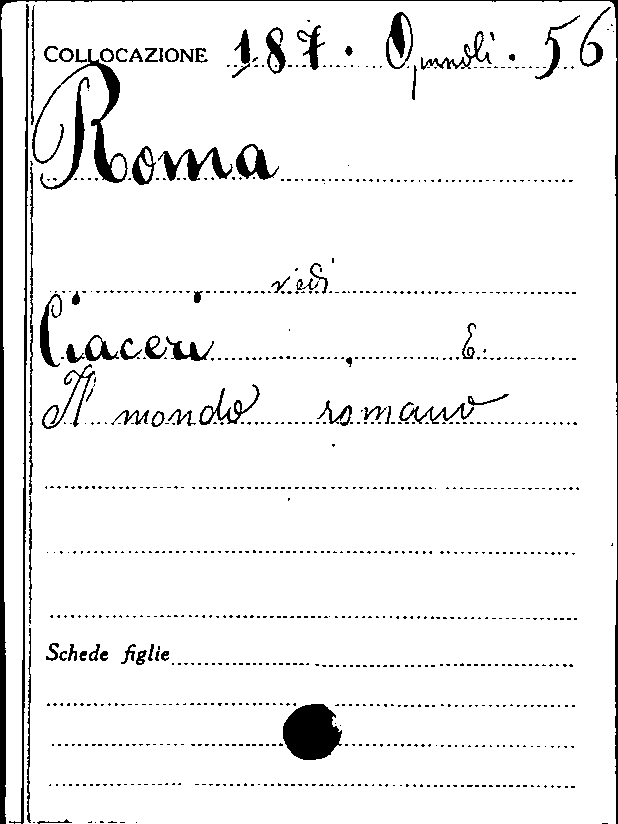 COLLOCAZIONE 187. Opuscoli. 56
Roma
vedi
Ciaceri, E.
Il mondo romano
Schede figlie